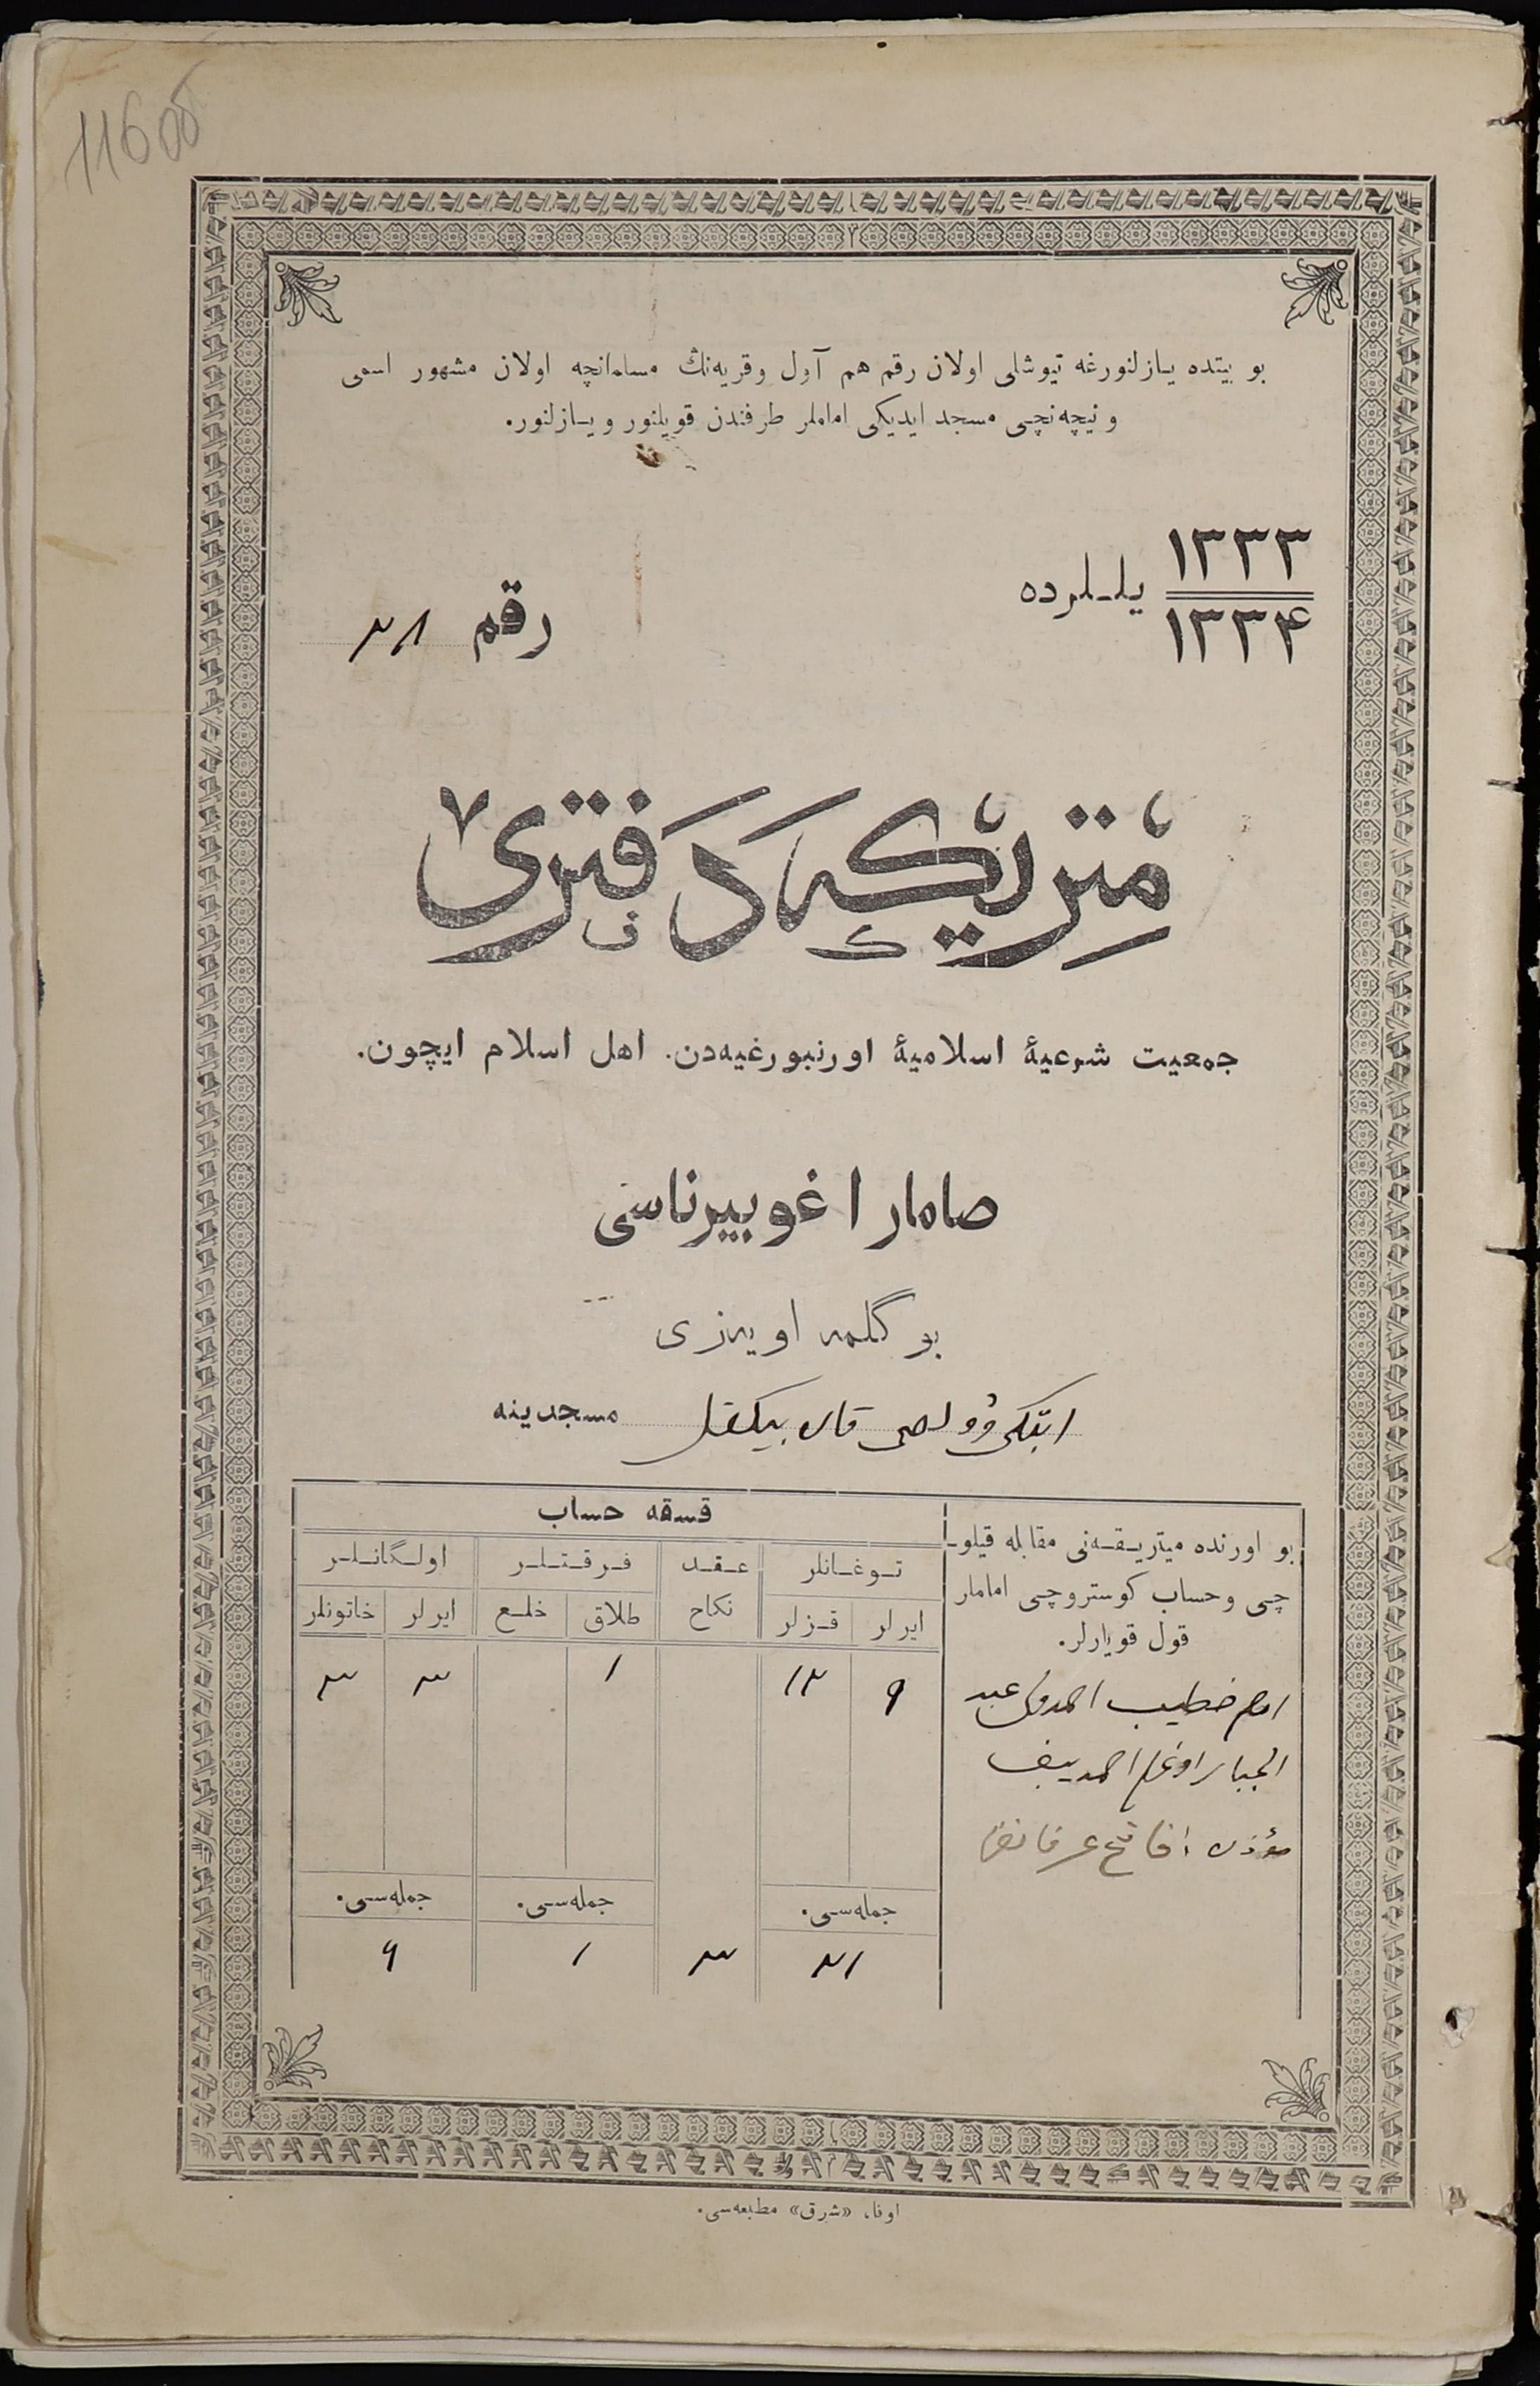 116 об
بو بیتده یازلنورغه تیوشلی اولان رقم هم آول وقریه‌نڭ مسلمانچه اولان مشهور اسمی
و نیچه‌نچی مسجد ایدیکی اماملر طرفندن قویلنور و یازلنور.
۱۳۳۳
۱۳۳۴
یللرده
رقم ۲۸
متریكه دفتری
جمعیت شرعیۀ اسلامیۀ اورنبورغیه‌دن. اهل اسلام ایچون.
صامارا غوبیرناسی
بوگلمه اویه‌زی
مسجدینه
بو اورنده میتریقه‌نی مقابله قیلو-
چی وحساب کوستروچی اماملر
قول قویارلر.
امام خطیب عبد
الجبار اوغلی احمدییف
مؤذن
قسقه حساب
توغانلر عقد فرقتلر اولگانلر
ایرلر قزلر نکاح طلاق خلع ایرلر خاتونلر
۹ ۱۲ ۱ ۳ ۳
جمله‌سی. جمله‌سی. جمله‌سی.
۲۱ ۳ ۱ ۶
اوفا، «شرق» مطبعه‌سی.